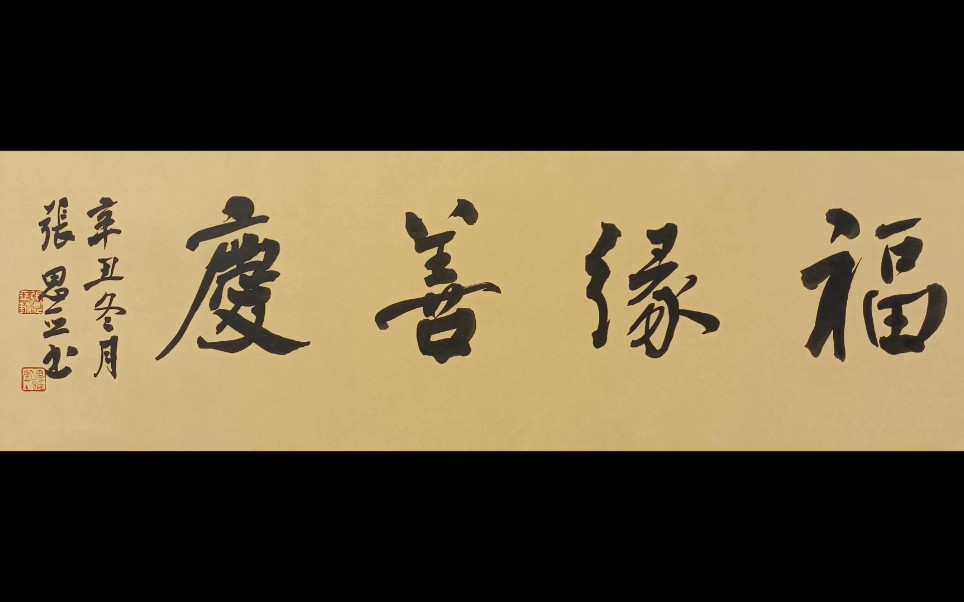 福緣善慶
辛丑冬月
張思 书